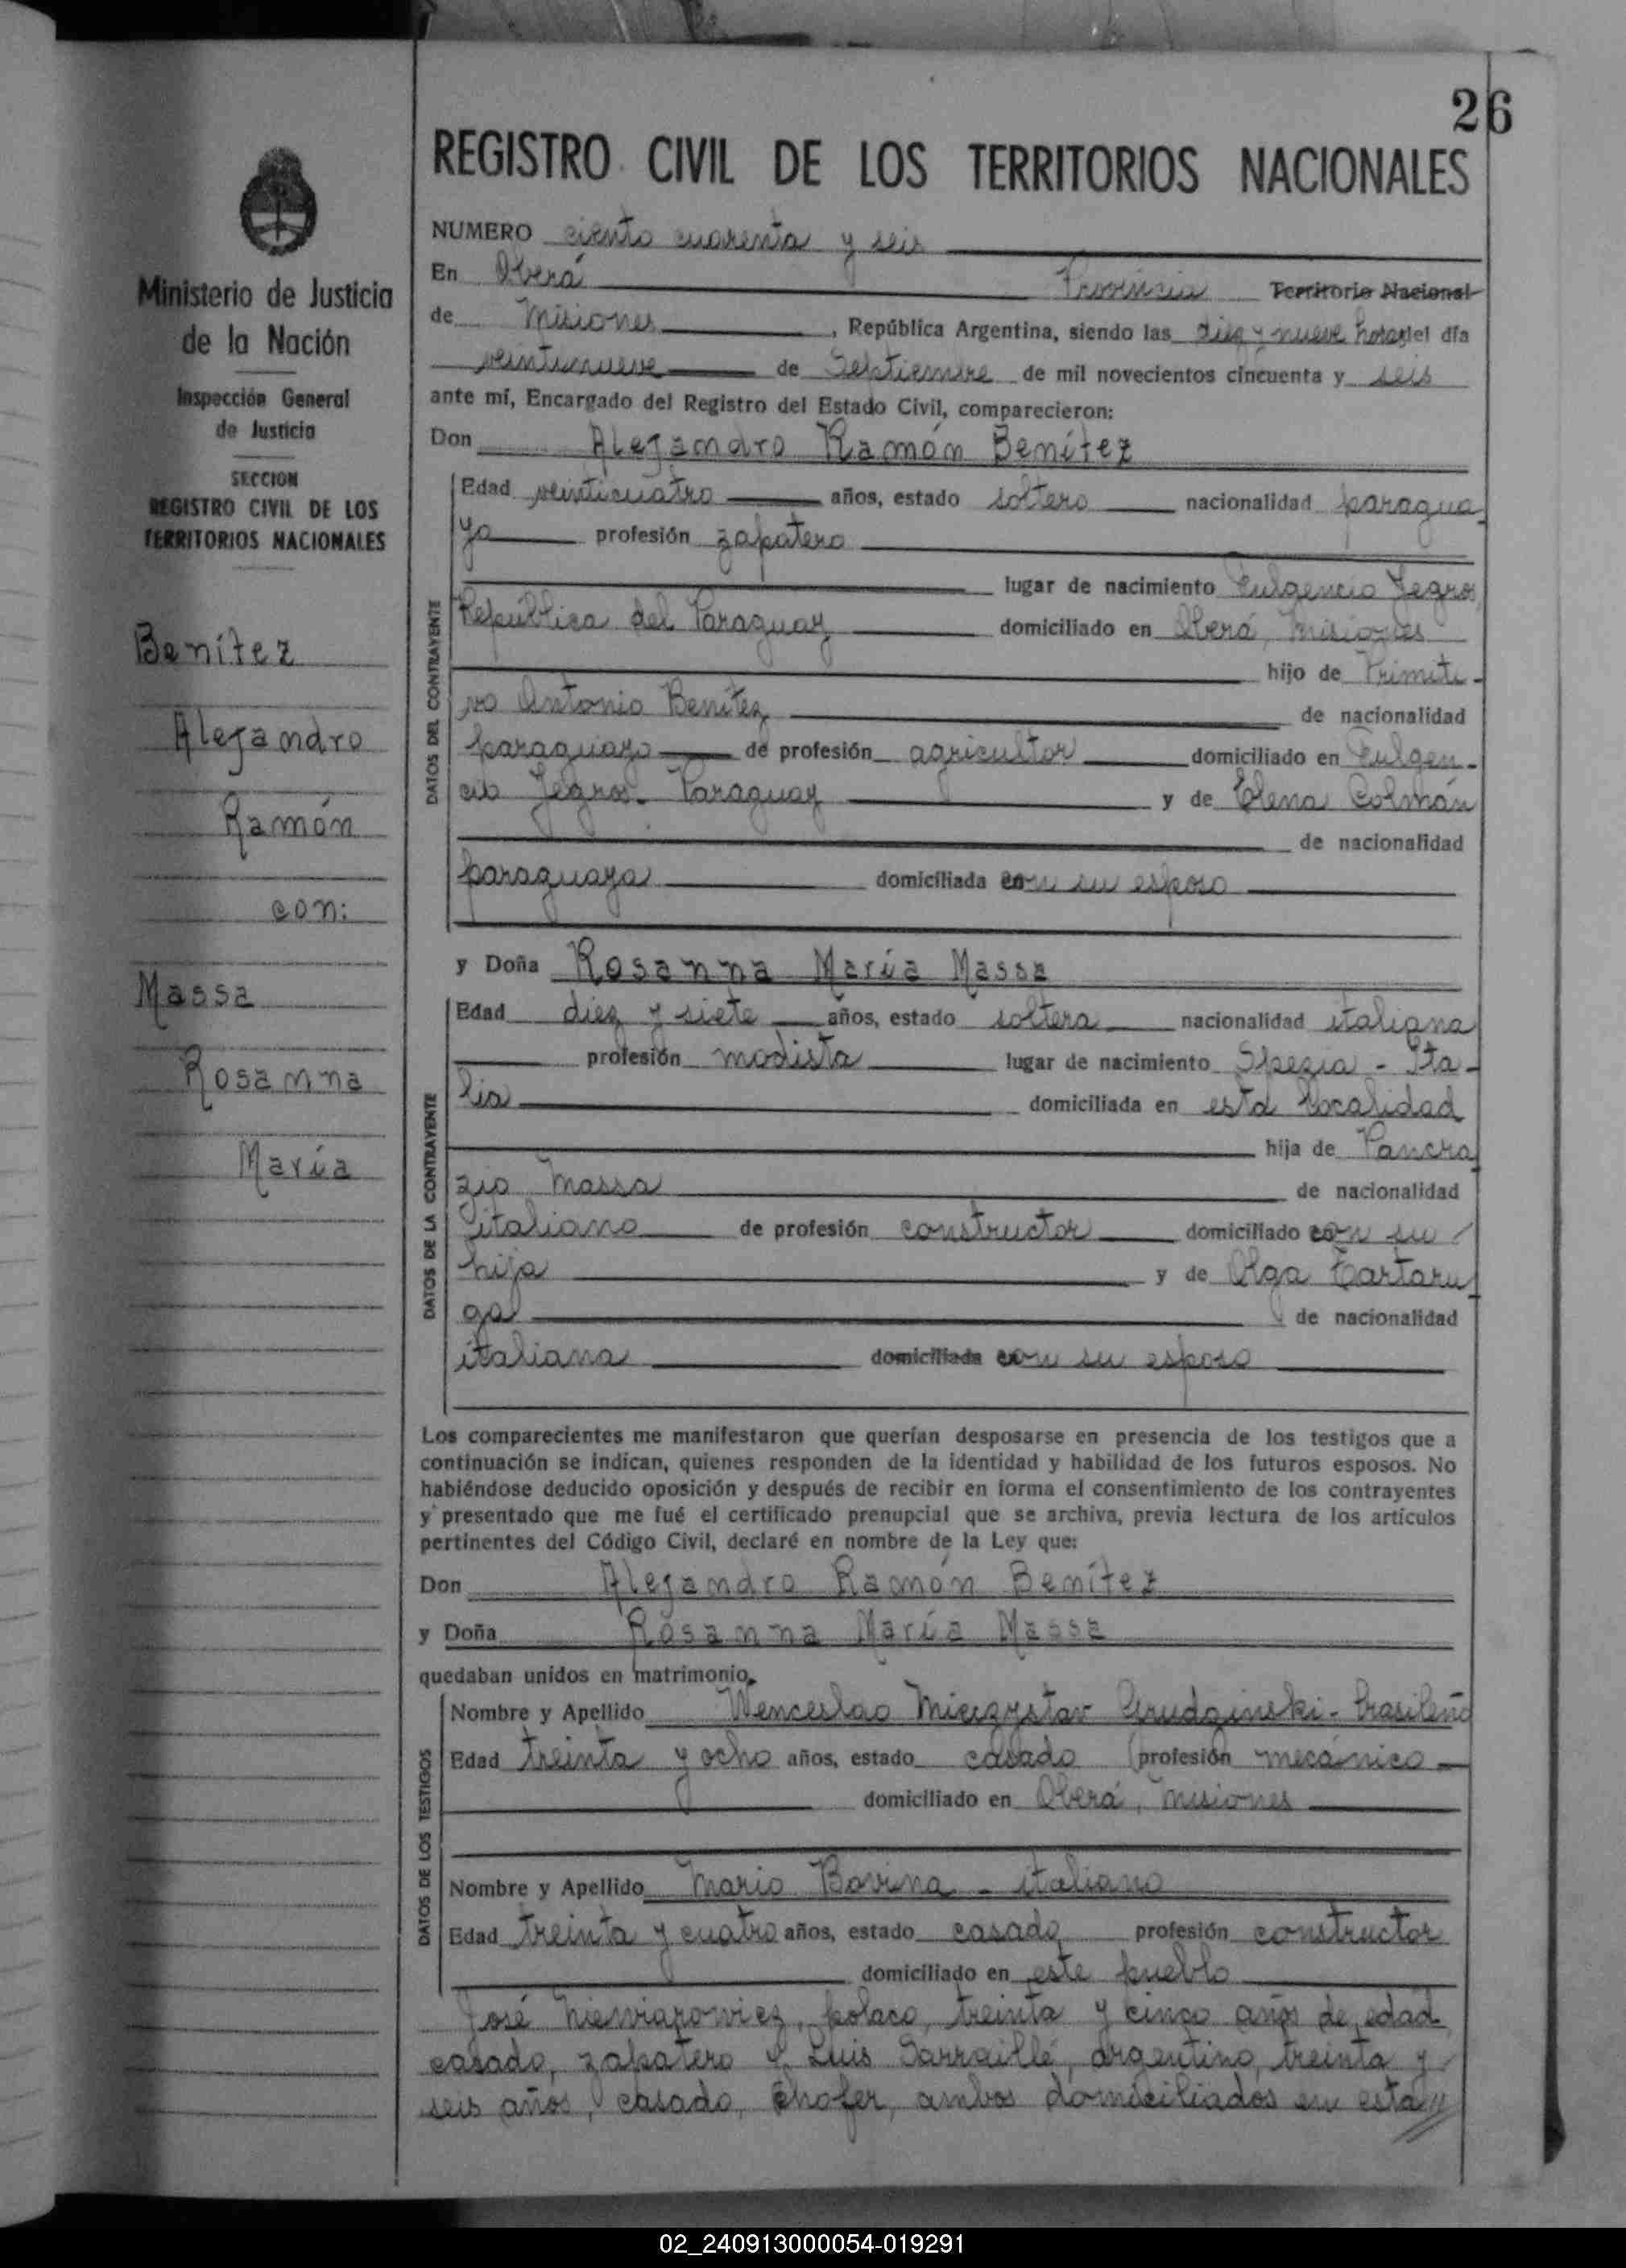 26
REGISTRO CIVIL DE LOS TERRITORIOS NACIONALES
Ministerio de Justicia
de la Nación
Inspección General
de Justicia
SECCION
REGISTRO CIVIL DE LOS
TERRITORIOS NACIONALES
Benítez
Alejandro
Ramón
con:
Massa
Rosanna
María
NUMERO ciento cuarenta y seis
En Oberá Provincia Territorio Nacional
de Misiones, República Argentina, siendo las diez y nueve horas del día
veintinueve de Septiembre de mil novecientos cincuenta y seis
ante mí, Encargado del Registro del Estado Civil, comparecieron:
Don Alejandro Ramón Benítez
DATOS DEL CONTRAYENTE
Edad veinticuatro años, estado soltero nacionalidad paragua
yo profesión zapatero
lugar de nacimiento Fulgencio Yegros
República del Paraguay domiciliado en Oberá, Misiones
hijo de Primiti-
vo Antonio Benítez de nacionalidad
paraguayo de profesión agricultor domiciliado en Fulgen-
cio Yegros- Paraguay y de Elena Colmán
de nacionalidad
paraguaya domiciliada con su esposo
y Doña Rosanna María Massa
DATOS DE LA CONTRAYENTE
Edad diez y siete años, estado soltera nacionalidad italiana
profesión modista lugar de nacimiento Spezia - Ita-
lia domiciliada en esta localidad
hija de Pancra
zio Massa de nacionalidad
italiano de profesión constructor domiciliado con su
hija y de Olga Tartaru
ga de nacionalidad
italiana domiciliada con su esposo
Los comparecientes me manifestaron que querían desposarse en presencia de los testigos que a
continuación se indican, quienes responden de la identidad y habilidad de los futuros esposos. No
habiéndose deducido oposición y después de recibir en forma el consentimiento de los contrayentes
y presentado que me fué el certificado prenupcial que se archiva, previa lectura de los artículos
pertinentes del Código Civil, declaré en nombre de la Ley que:
Don Alejandro Ramón Benítez
y Doña Rosanna María Massa
quedaban unidos en matrimonio.
DATOS DE LOS TESTIGOS
Nombre y Apellido Wenceslao Mieczystav Grudzinski - brasileño
Edad treinta y ocho años, estado casado profesión mecánico
domiciliado en Oberá, Misiones
Nombre y Apellido Mario Bovina - italiano
Edad treinta y cuatro años, estado casado profesión constructor
domiciliado en este pueblo
José, polaco, treinta y cinco años de edad
casado, zapatero y Luis Sarraillé, argentino, treinta y
seis años, casado, chofer, ambos domiciliados en esta//
02_240913000054-019291